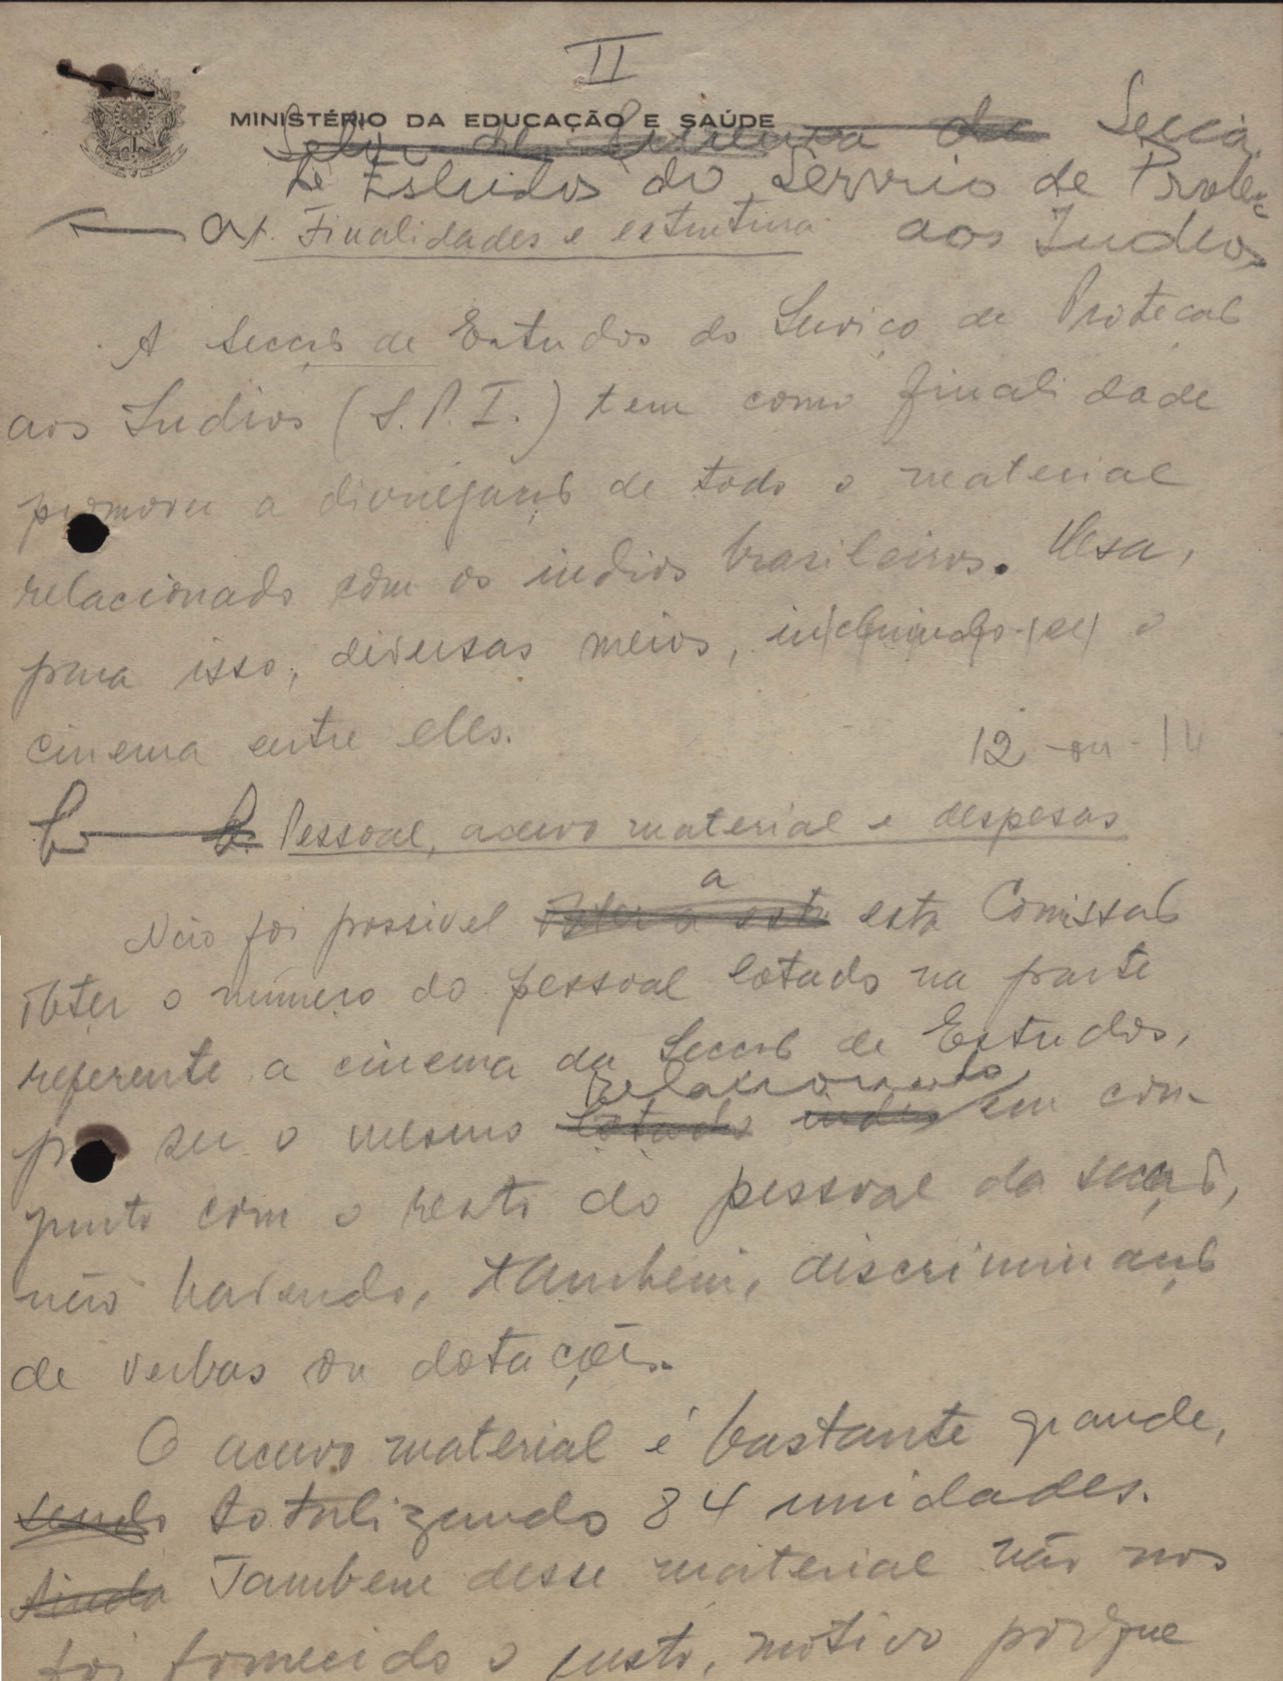 II
MINISTÉRIO DA EDUCAÇÃO E SAÚDE
Secçã
de Estudos do Serviço de Proteç
a). Finalidades e estrutura aos Indios
A Secção de Estudos do Serviço de Proteção
aos Indios (S.P.I.) tem como finalidade
promover a divulgação de todo o material
relacionado com os indios brasileiros. Usa,
para isso, diversos meios, incluindo-se o
cinema entre elles.
12 - ou - 14
b. Pessoal, acervo material e despesas
a
Não foi possivel obter a esta esta Comissão
obter o número do pessoal lotado na parte
referente a cinema da Secção de Estudos,
relacionado
por ser o mesmo lotado em con-
junto com o resto do pessoal da secção,
não havendo, tambem, discriminação
de verbas ou dotações.
O acervo material é bastante grande,
sendo totalizando 84 unidades.
Ainda Tambem desse material não nos
foi fornecido o custo, motivo porque